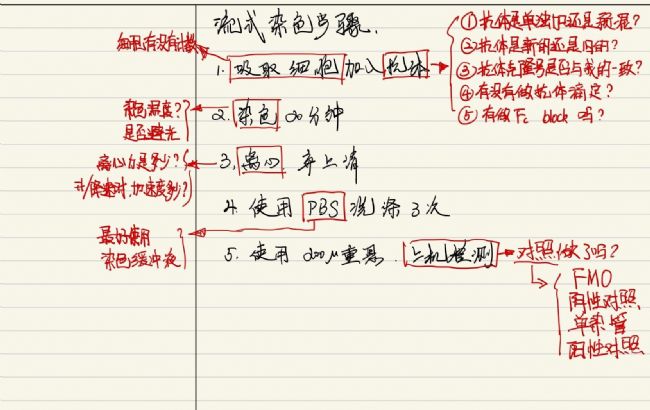 流式染色步骤.
细胞有没有计数
1. 吸取细胞加入抗体
① 抗体是单独加还是预混?
② 抗体是新的还是旧的?
③ 抗体克隆号是否与我的一致?
④ 有没有做抗体滴定?
⑤ 有做Fc block 吗?
染色温度?
是否避光
2. 染色 20分钟
离心力是多少?
升/降速时,加速度多少?
3. 离心 弃上清
4. 使用 PBS 洗涤 3次
最好使用
染色缓冲液
5. 使用 200μ重悬. 上机检测
对照做了吗?
FMO
阴性对照
单染管
阳性对照